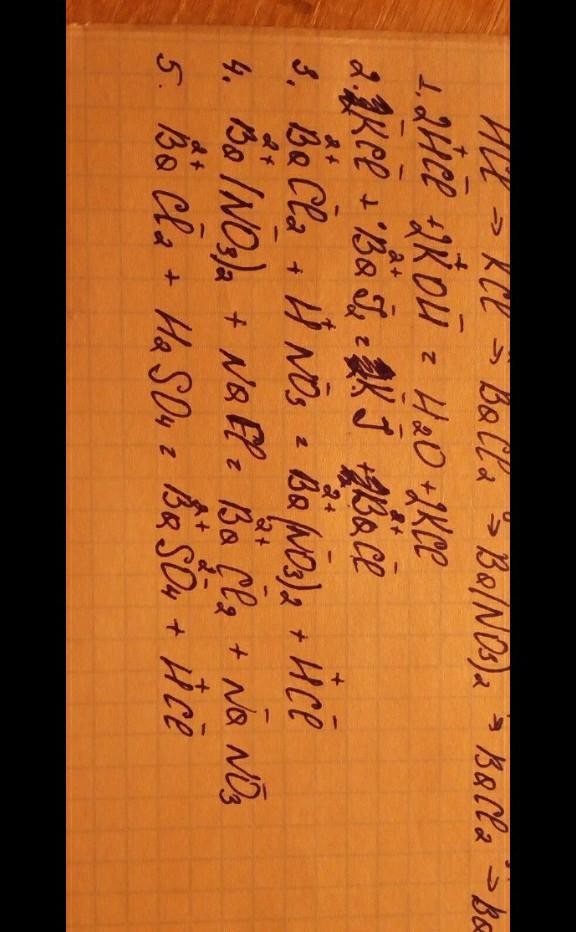 HCl ⇒ KCl ⇒ BaCl₂ ⇒ Ba(NO₃)₂ ⇒ BaCl₂ ⇒ Ba
1. 2H⁺Cl⁻ + 2K⁺OH⁻ = H₂O + 2KCl
2. KCl⁻ + Ba²⁺J₂⁻ = KJ⁻ + Ba²⁺Cl⁻
3. Ba²⁺Cl₂⁻ + H⁺NO₃⁻ = Ba²⁺(NO₃)₂⁻ + H⁺Cl⁻
4. Ba²⁺(NO₃)₂⁻ + NaCl = Ba²⁺Cl₂⁻ + Na⁻NO₃⁻
5. Ba²⁺Cl₂⁻ + H₂SO₄ = Ba²⁺SO₄²⁻ + H⁺Cl⁻